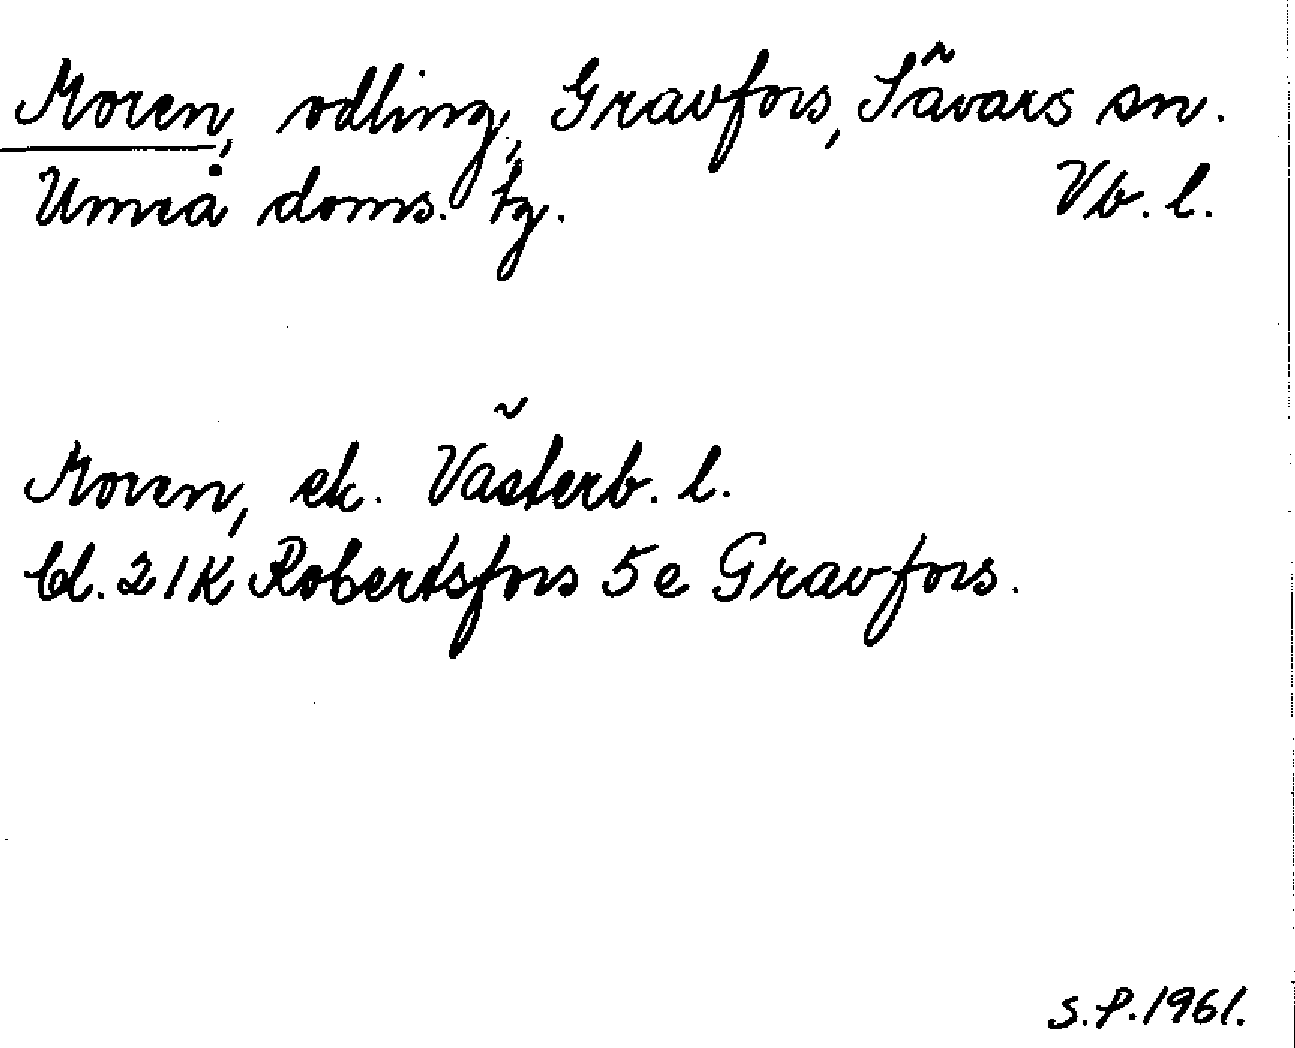 Moren, odling, Gravfors, Sävars sn.
Umeå doms. tg. Vb. l.
Moren, ek. Västerb. l.
bl. 21K Robertsfors 5e Gravfors.
S.P. 1961.